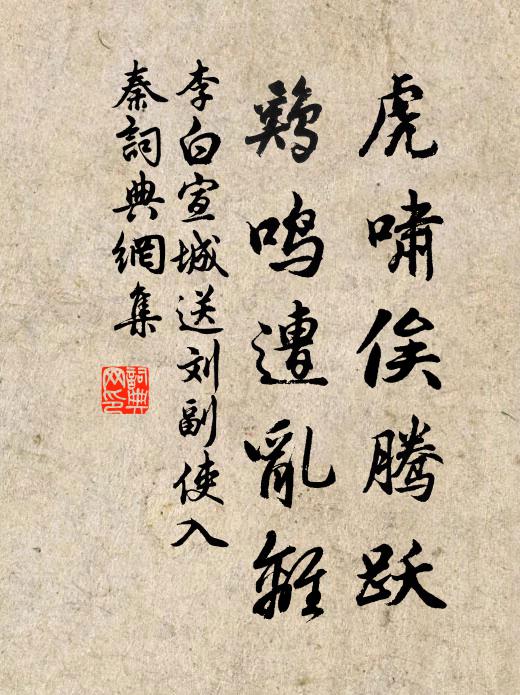 虎啸俟腾跃
鸡鸣遭亂離
李白宣城送刘副使入
秦詞典網集
詞典
网印